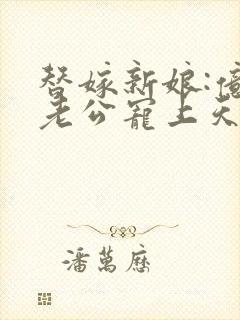 替嫁新娘:億
老公寵上天
潘萬歷